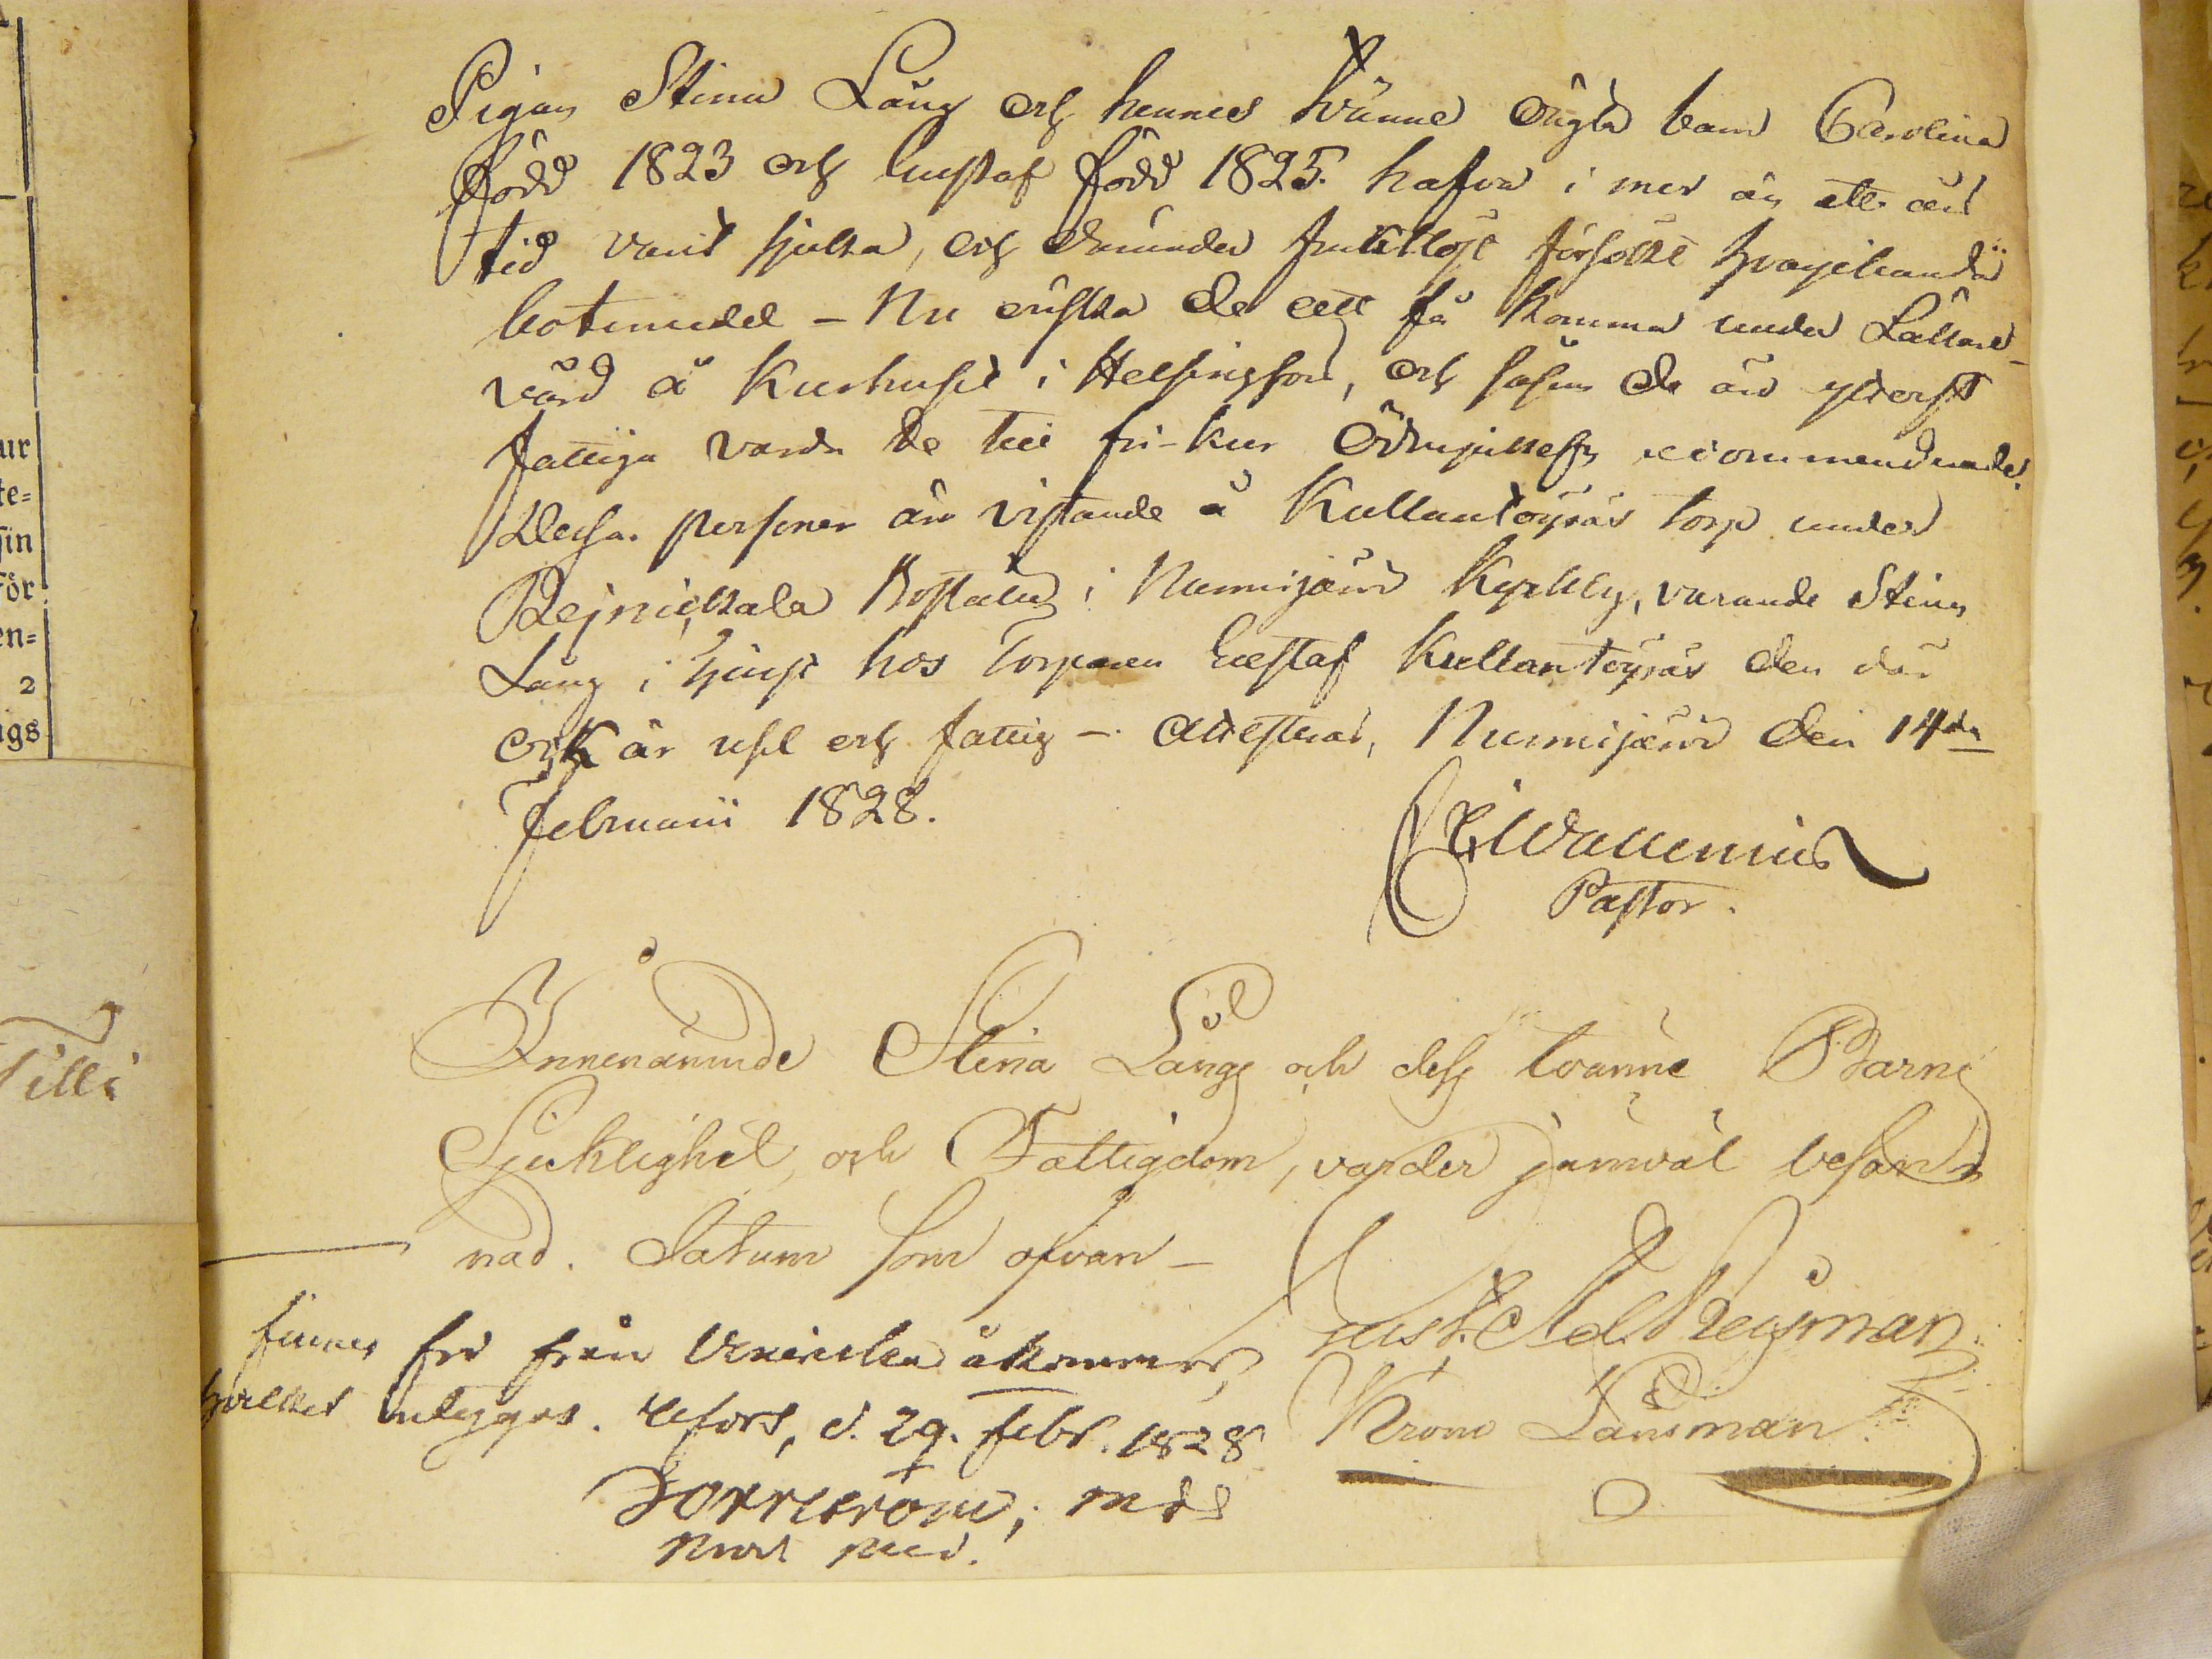 Pigan Stina Lång och hennes tvänne oägta barn Carolina
född 1823 och Gustaf född 1825. hafva i mer än ett års
tid varit sjulka, och derunder fruktlöst försökt hvarjehanda
botemedel – Nu önska de att få komma under Läkare-
vård å Kurhuset i Helsingfors, och såsom de äro ytterst
fattiga varda de till fri-kur ödmjukast recommenderade.
Dessa personer äro vistande å Kullantöyräs torp under
Rejnickala Boställe i Nummijärvi Kyrkby, varande Stina
Lång i tjenst hos Torparen Gustaf Kullantöyräs den där
ock är usel och fattig – Attesterar, Nummijärvi den 14de
Februarii 1828.
Wallenius
Pastor.
Innenämnde Stina Lång och dess tvänne Barns
Sjuklighet, och Fattigdom, varder jemväl besan
nad. Datum som ofvan –
Gust. Ad. Regsman
Krono Länsman
finnes fri från Veneriska åkommor,
hvilket intygas. Hfors, d. 29. Febr. 1828
Törnroth, mdd
Prov Med.
ur
te=
sin
För
en=
2
igs
Tilli